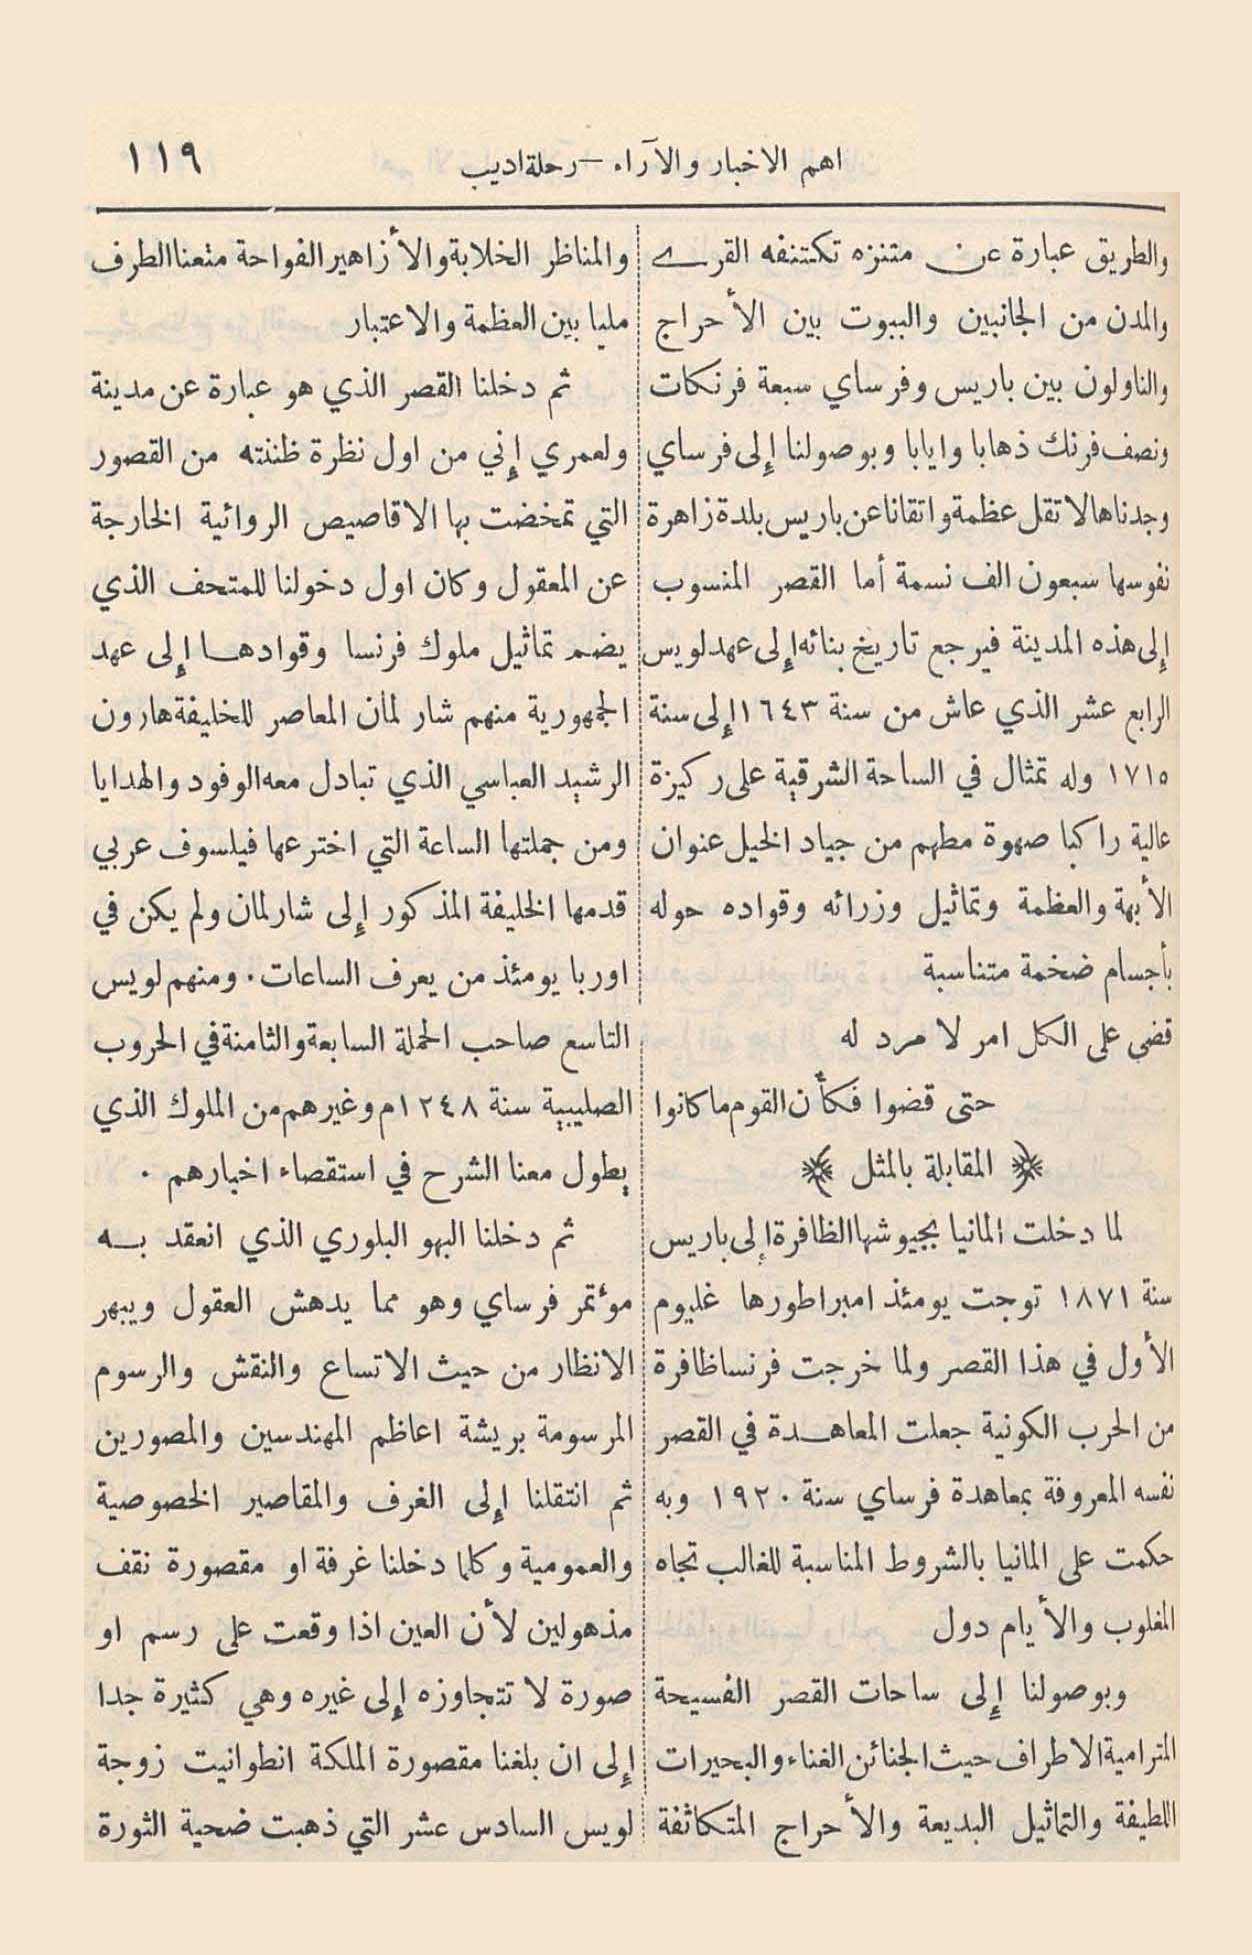 اهم الاخبار والآراء — رحلة اديب
١١٩
والطريق عبارة عن متنزه تكتنفه القرى
والمدن من الجانبين والبيوت بين الأحراج
والناولون بين باريس وفرساي سبعة فرنكات
ونصف فرنك ذهابا وايابا وبوصولنا إلى فرساي
وجدناها لا تقل عظمة واتقانا عن باريس بلدة زاهرة
نفوسها سبعون الف نسمة أما القصر المنسوب
إلى هذه المدينة فيرجع تاريخ بنائه إلى عهد لويس
الرابع عشر الذي عاش من سنة ١٦٤٣ إلى سنة
١٧١٥ وله تمثال في الساحة الشرقية على ركيزة
عالية راكبا صهوة مطهم من جياد الخيل عنوان
الأبهة والعظمة وتماثيل وزرائه وقواده حوله
بأجسام ضخمة متناسبة
قضى على الكل امر لا مرد له
حتى قضوا فكأن القوم ما كانوا
﴿ المقابلة بالمثل ﴾
لما دخلت المانيا بجيوشها الظافرة إلى باريس
سنة ١٨٧١ توجت يومئذ امبراطورها غليوم
الأول في هذا القصر ولما خرجت فرنسا ظافرة
من الحرب الكونية جعلت المعاهدة في القصر
نفسه المعروفة بمعاهدة فرساي سنة ١٩٢٠ وبه
حكمت على المانيا بالشروط المناسبة للغالب تجاه
المغلوب والأيام دول
وبوصولنا إلى ساحات القصر الفسيحة
المترامية الاطراف حيث الجنائن الغناء والبحيرات
اللطيفة والتماثيل البديعة والأحراج المتكاثفة
والمناظر الخلابة والأزاهير الفواحة متعنا الطرف
مليا بين العظمة والاعتبار
ثم دخلنا القصر الذي هو عبارة عن مدينة
ولعمري إني من اول نظرة ظننته من القصور
التي تمخضت بها الاقاصيص الروائية الخارجة
عن المعقول وكان اول دخولنا للمتحف الذي
يضم تماثيل ملوك فرنسا وقوادها إلى عهد
الجمهورية منهم شارلمان المعاصر للخليفة هارون
الرشيد العباسي الذي تبادل معه الوفود والهدايا
ومن جملتها الساعة التي اخترعها فيلسوف عربي
قدمها الخليفة المذكور إلى شارلمان ولم يكن في
اوربا يومئذ من يعرف الساعات . ومنهم لويس
التاسع صاحب الحملة السابعة والثامنة في الحروب
الصليبية سنة ١٢٤٨ م وغيرهم من الملوك الذي
يطول معنا الشرح في استقصاء اخبارهم .
ثم دخلنا البهو البلوري الذي انعقد به
مؤتمر فرساي وهو مما يدهش العقول ويبهر
الانظار من حيث الاتساع والنقش والرسوم
المرسومة بريشة اعاظم المهندسين والمصورين
ثم انتقلنا إلى الغرف والمقاصير الخصوصية
والعمومية وكلما دخلنا غرفة او مقصورة نقف
مذهولين لأن العين اذا وقعت على رسم او
صورة لا تتجاوزه إلى غيره وهي كثيرة جدا
إلى ان بلغنا مقصورة الملكة انطوانيت زوجة
لويس السادس عشر التي ذهبت ضحية الثورة